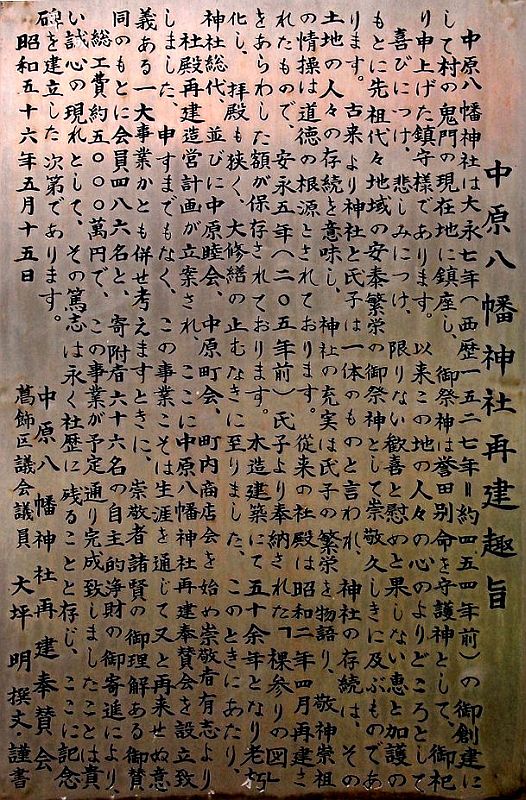 中原八幡神社再建趣旨
中原八幡神社は大永七年(西歴一五二七年=約四五四年前)の御創建に
して村の鬼門の現在地に鎮座し、御祭神は誉田別命を守護神として、御祀
り申上げた鎮守様であります。以来この地の人々の心のよりどころとして
喜びにつけ、悲しみにつけ、限りない歓喜と慰めと果しない恵と加護の
もとに先祖代々地域の安泰繁栄の御祭神として崇敬久しきに及ぶものであ
ります。古来より神社と氏子は一体のものと言われ、神社の存続は、その
土地の人々の存続を意味し、神社の充実は氏子の繁栄を物語り、敬神崇祖
の情操は道徳の根源とされております。従来の社殿は昭和二年四月再建さ
れたもので、安永五年(二〇五年前)氏子より奉納された「裸参りの図」
をあらわした額が保存されております。木造建築にて五十余年となり老朽
化し、拝殿も狭く、大修繕の止むなきに至りました、このときにあたり、
神社総代、並びに中原睦会、中原町会、町内商店会を始め崇敬者有志より
社殿再建造営計画が立案され、ここに中原八幡神社再建奉賛会を設立致
しました、申すまでもなく、この事業こそは生涯を通じて又と再来せぬ意
義ある一大事業かとも併せ考えますときに、崇敬者諸賢の御理解ある御賛
同のもとに会員四八六名と、寄附者六十六名の自主的浄財の御寄進により、
総工費約五〇〇〇萬円で、この事業が予定通り完成致しましたことは貴
い誠心の現れとして、その篤志は永く社歴に残ることと存じ、ここに記念
碑を建立した次第であります。
昭和五十六年五月十五日
中原八幡神社再建奉賛会
葛飾区議会議員 大坪明撰文・謹書